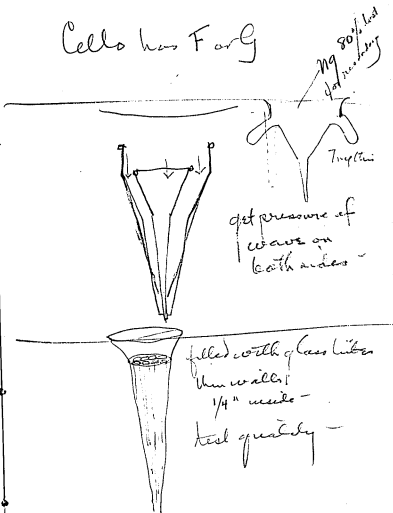 Cello has F or G
ng 80% lost
for recording
Try this
get pressure of
wave on
both sides -
filled with glass tubes
thin walls
1/4" inside -
test quality -